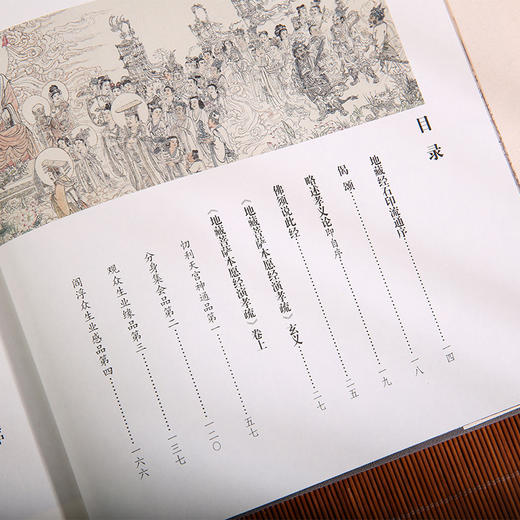 目录
地藏经石印流通序……一四
偈颂……一八
略述孝义论 即自序……一九
佛须说此经……二五
《地藏菩萨本愿经演孝疏》玄义……二七
《地藏菩萨本愿经演孝疏》卷上
忉利天宫神通品第一……五七
分身集会品第二……一二〇
观众生业缘品第三……一三七
阎浮众生业感品第四……一六六